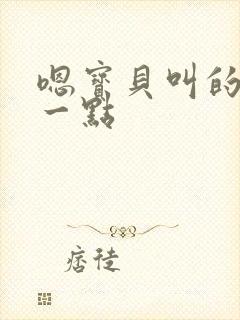 嗯寶貝叫的
一點
痞徒